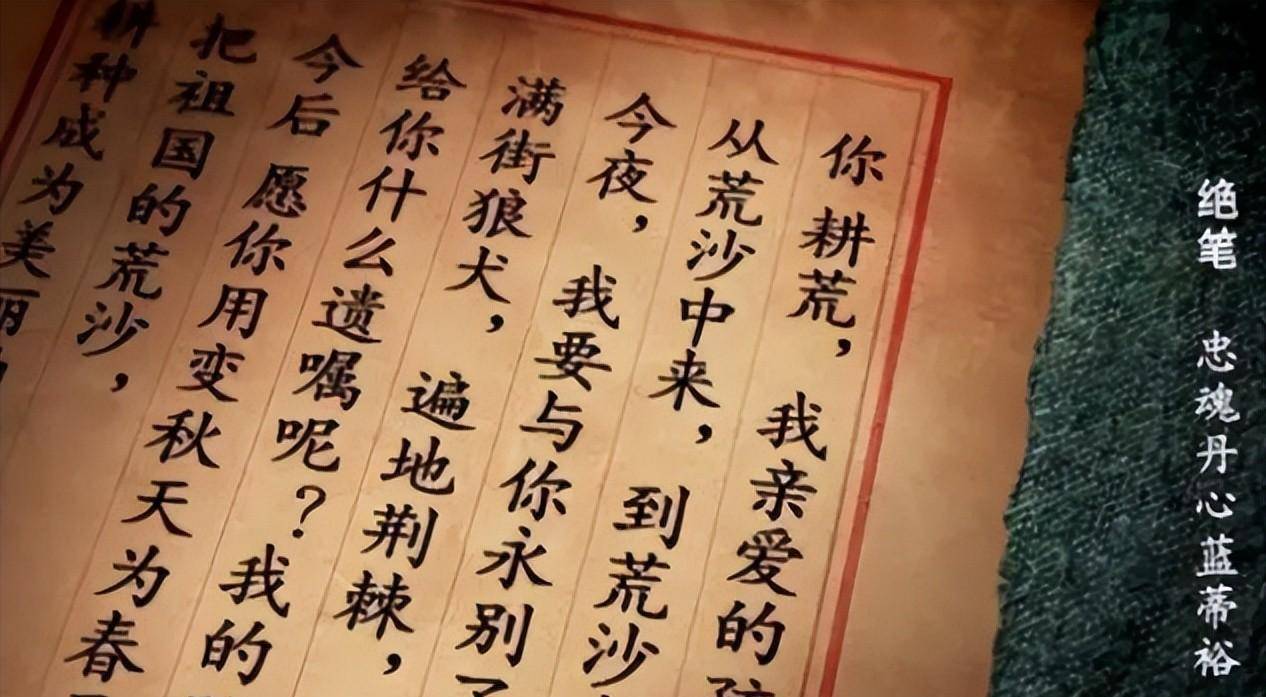 绝笔 忠魂丹心蓝蒂裕
你 耕荒， 我亲爱的
从荒沙中来， 到荒沙
今夜， 我要与你永别了
满街狼犬， 遍地荆棘，
给你什么遗嘱呢？ 我的
今后 愿你用变秋天为春
把祖国的荒沙，
耕种成为美丽